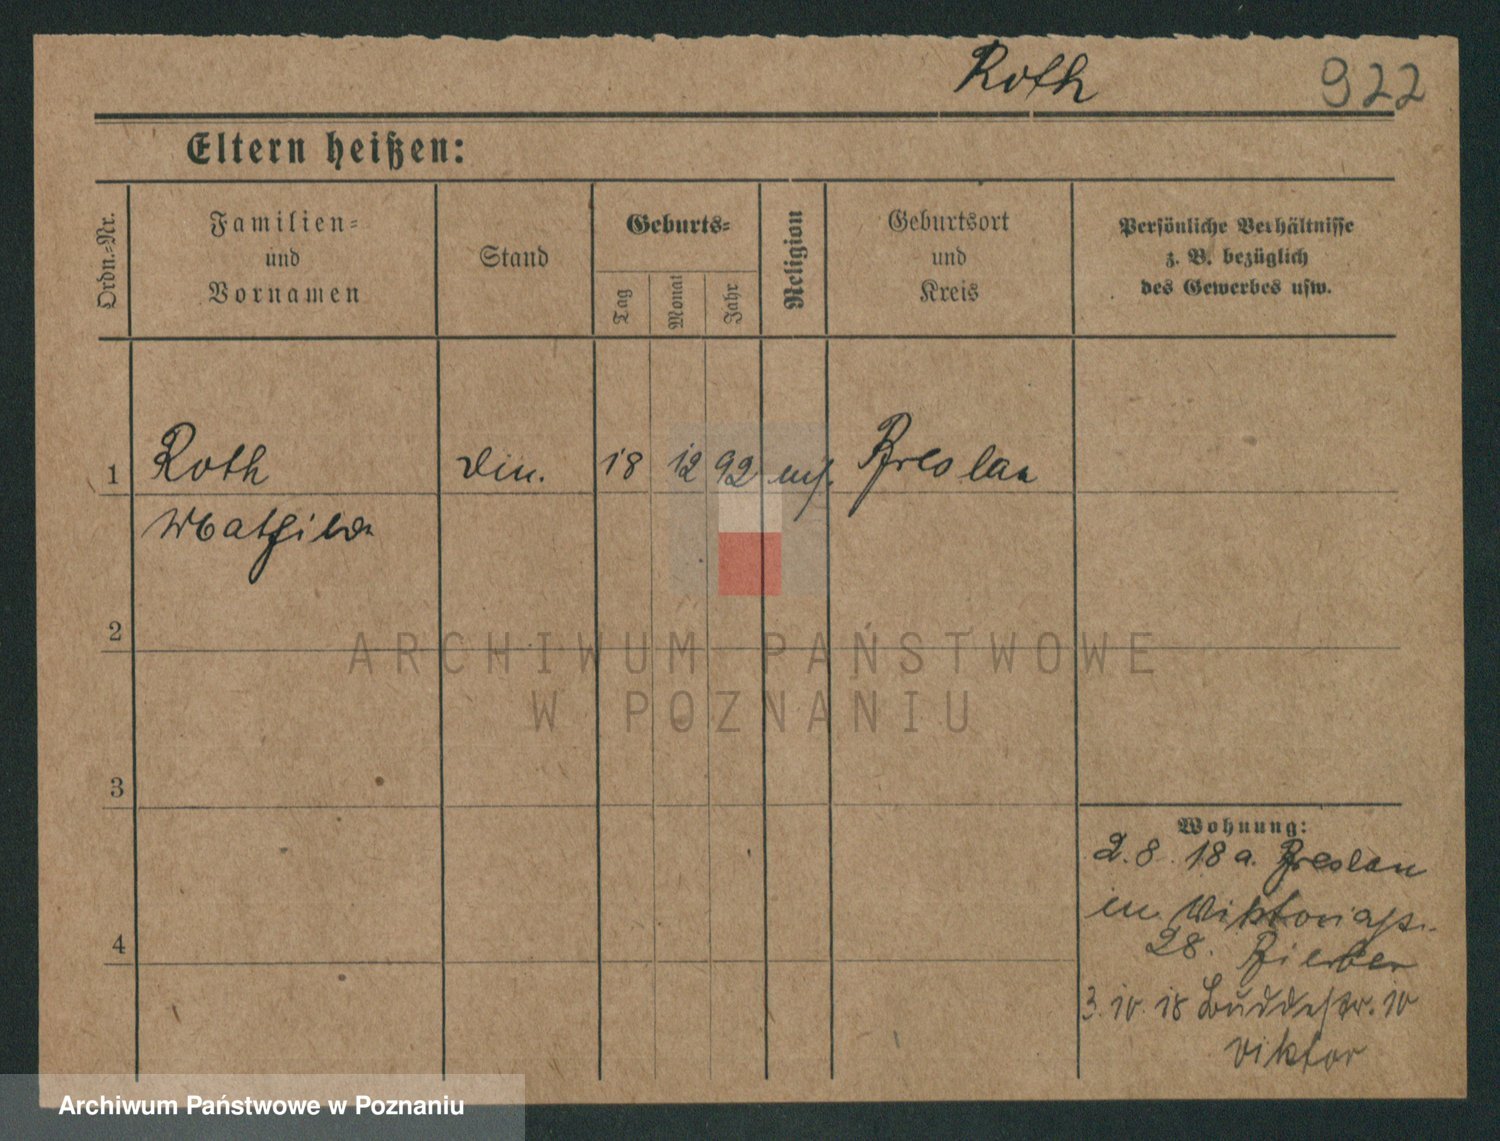 Roth 922
Eltern heißen:
Ordn.=Nr.
Familien=
und
Vornamen
Stand
Geburts=
Tag
Monat
Jahr
Religion
Geburtsort
und
Kreis
Persönliche Verhältnisse
z. B. bezüglich
des Gewerbes usw.
1 Roth Din. 18 12 92 Breslau
Mathilde
2
ARCHIWUM PAŃSTWOWE
W POZNANIU
3
Wohnung:
2.8.18 a. Breslau
28.
4
3.10.18 Buddestr. 10
Viktor
Archiwum Państwowe w Poznaniu